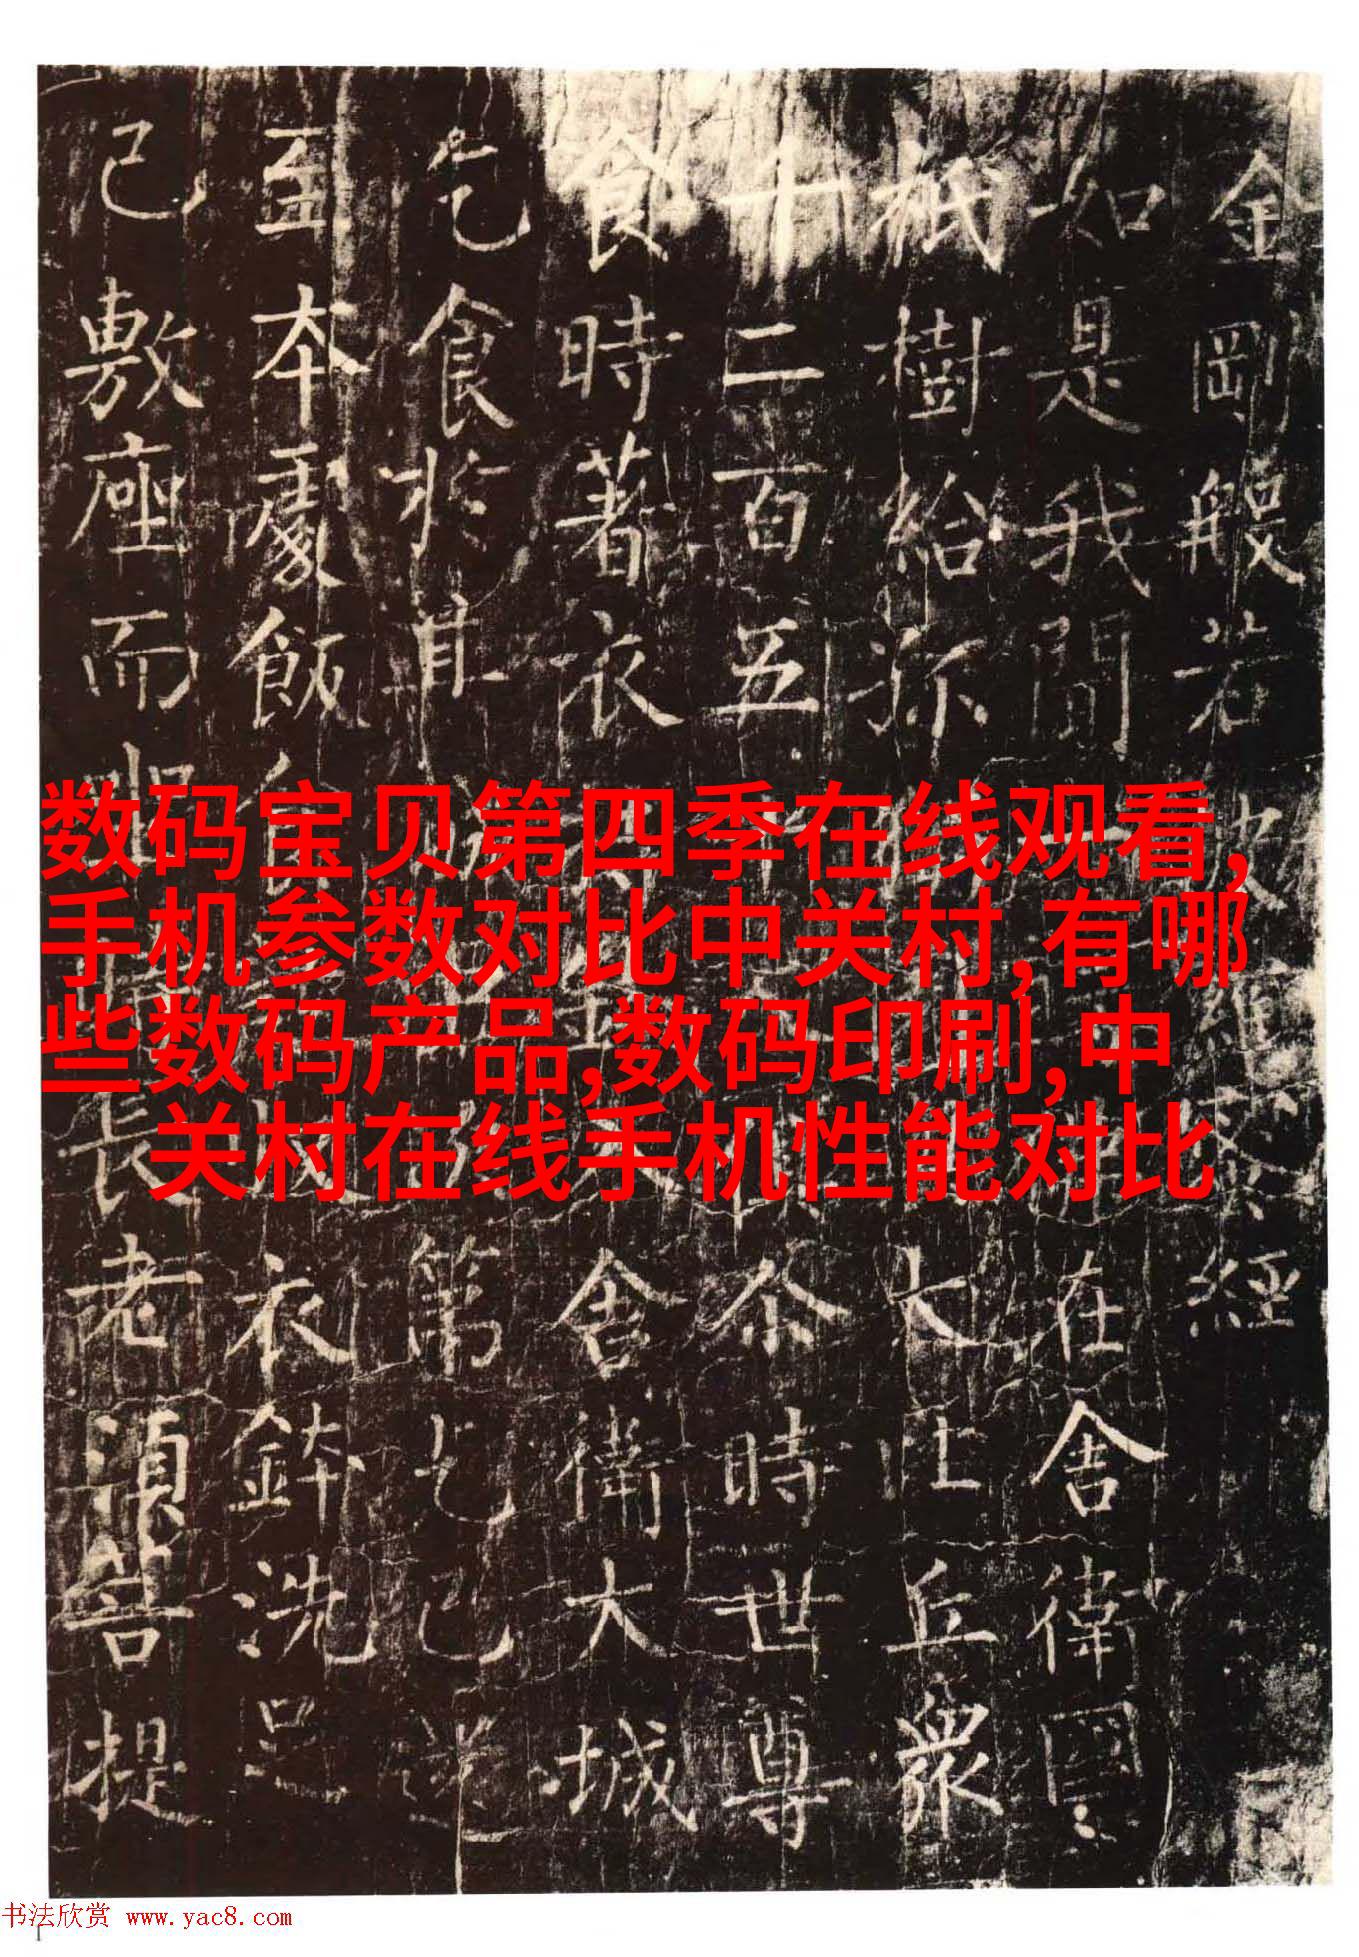 金剛般若經
如是我聞在舍衛國
祇樹給孤大比丘眾
十二百五尒時世尊
食時著衣舍衛大城
乞食於其第乞已還
至本處飯衣鉢洗足
已敷座而長老須菩提
数码宝贝第四季在线观看,
手机参数对比中关村,有哪
些数码产品,数码印刷,中
关村在线手机性能对比
书法欣赏 www.yac8.com